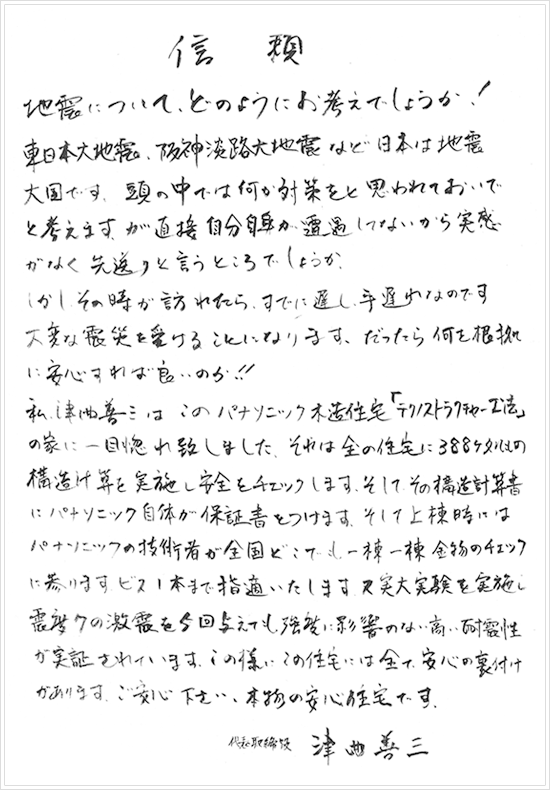 信頼
地震について、どのようにお考えでしょうか!
東日本大地震、阪神淡路大地震など日本は地震
大国です。頭の中では何か対策をと思われておいで
と考えますが直接自分自身が遭遇してないから実感
がなく先送りと言うところでしょうか、
しかしその時が訪れたら、すでに遅し、手遅れなのです
大変な震災を受けることになります、だったら何を根拠
に安心すれば良いのか!!
私、津曲善三はこのパナソニック木造住宅「テクノストラクチャー工法」
の家に一目惚れ致しました、それは全の住宅に388ケ以上の
構造計算を実施し安全をチェックします、そしてその構造計算書
にパナソニック自体が保証書をつけます、そして上棟時には
パナソニックの技術者が全国どこでも一棟一棟金物のチェック
に参ります。ビス1本まで指適いたします。又実大実験を実施し
震度7の激震を5回与えても強度に影響のない高い耐震性
が実証されています。この様にこの住宅には全て、安心の裏付け
があります。ご安心下さい、本物の安心住宅です。
代表取締役 津曲善三